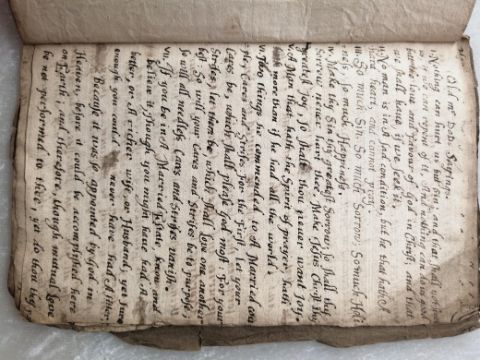 Old Mr Dods Sayings
I. Nothing can hurt us but Sin; and that shall not hurt
if we can repent of it. And nothing can do us good
but the love and favour of God in Christ; and that
we shall have if we seek it.
II. No man is in A sad condition, but he that hath A
Hard Heart, and cannot pray.
III. So much Sin, So much Sorrow; So much Holi-
ness, So much Happiness.
IV. Make thy Sin thy greatest Sorrow, So shall thy
Sorrow never hurt thee. Make Jesus Christ thy
greatest Joy, So shalt thou never want Joy.
V. A Man that hath the Spirit of prayer, hath
more than if he had all the world.
VI. Two things he commended to A Married Cou
ple, Cares and Strifes. For the First, let your
Cares be which shall please God most: For your
Strifes let them be which shall love one another
best. So will your Cares and Strifes be to purpose,
So will all needless Cares and Strifes vanish.
VII. If you be in A Married Estate, know and
believe it, though you might have had A
better, or A richer wife, or Husband, yet
enough you could never have had A fitter.
Because it was so appointed by God in
Heaven, before it could be accomplished here
on Earth; and therefore, though mutual Love
be not performed to thee, yet do thou thy